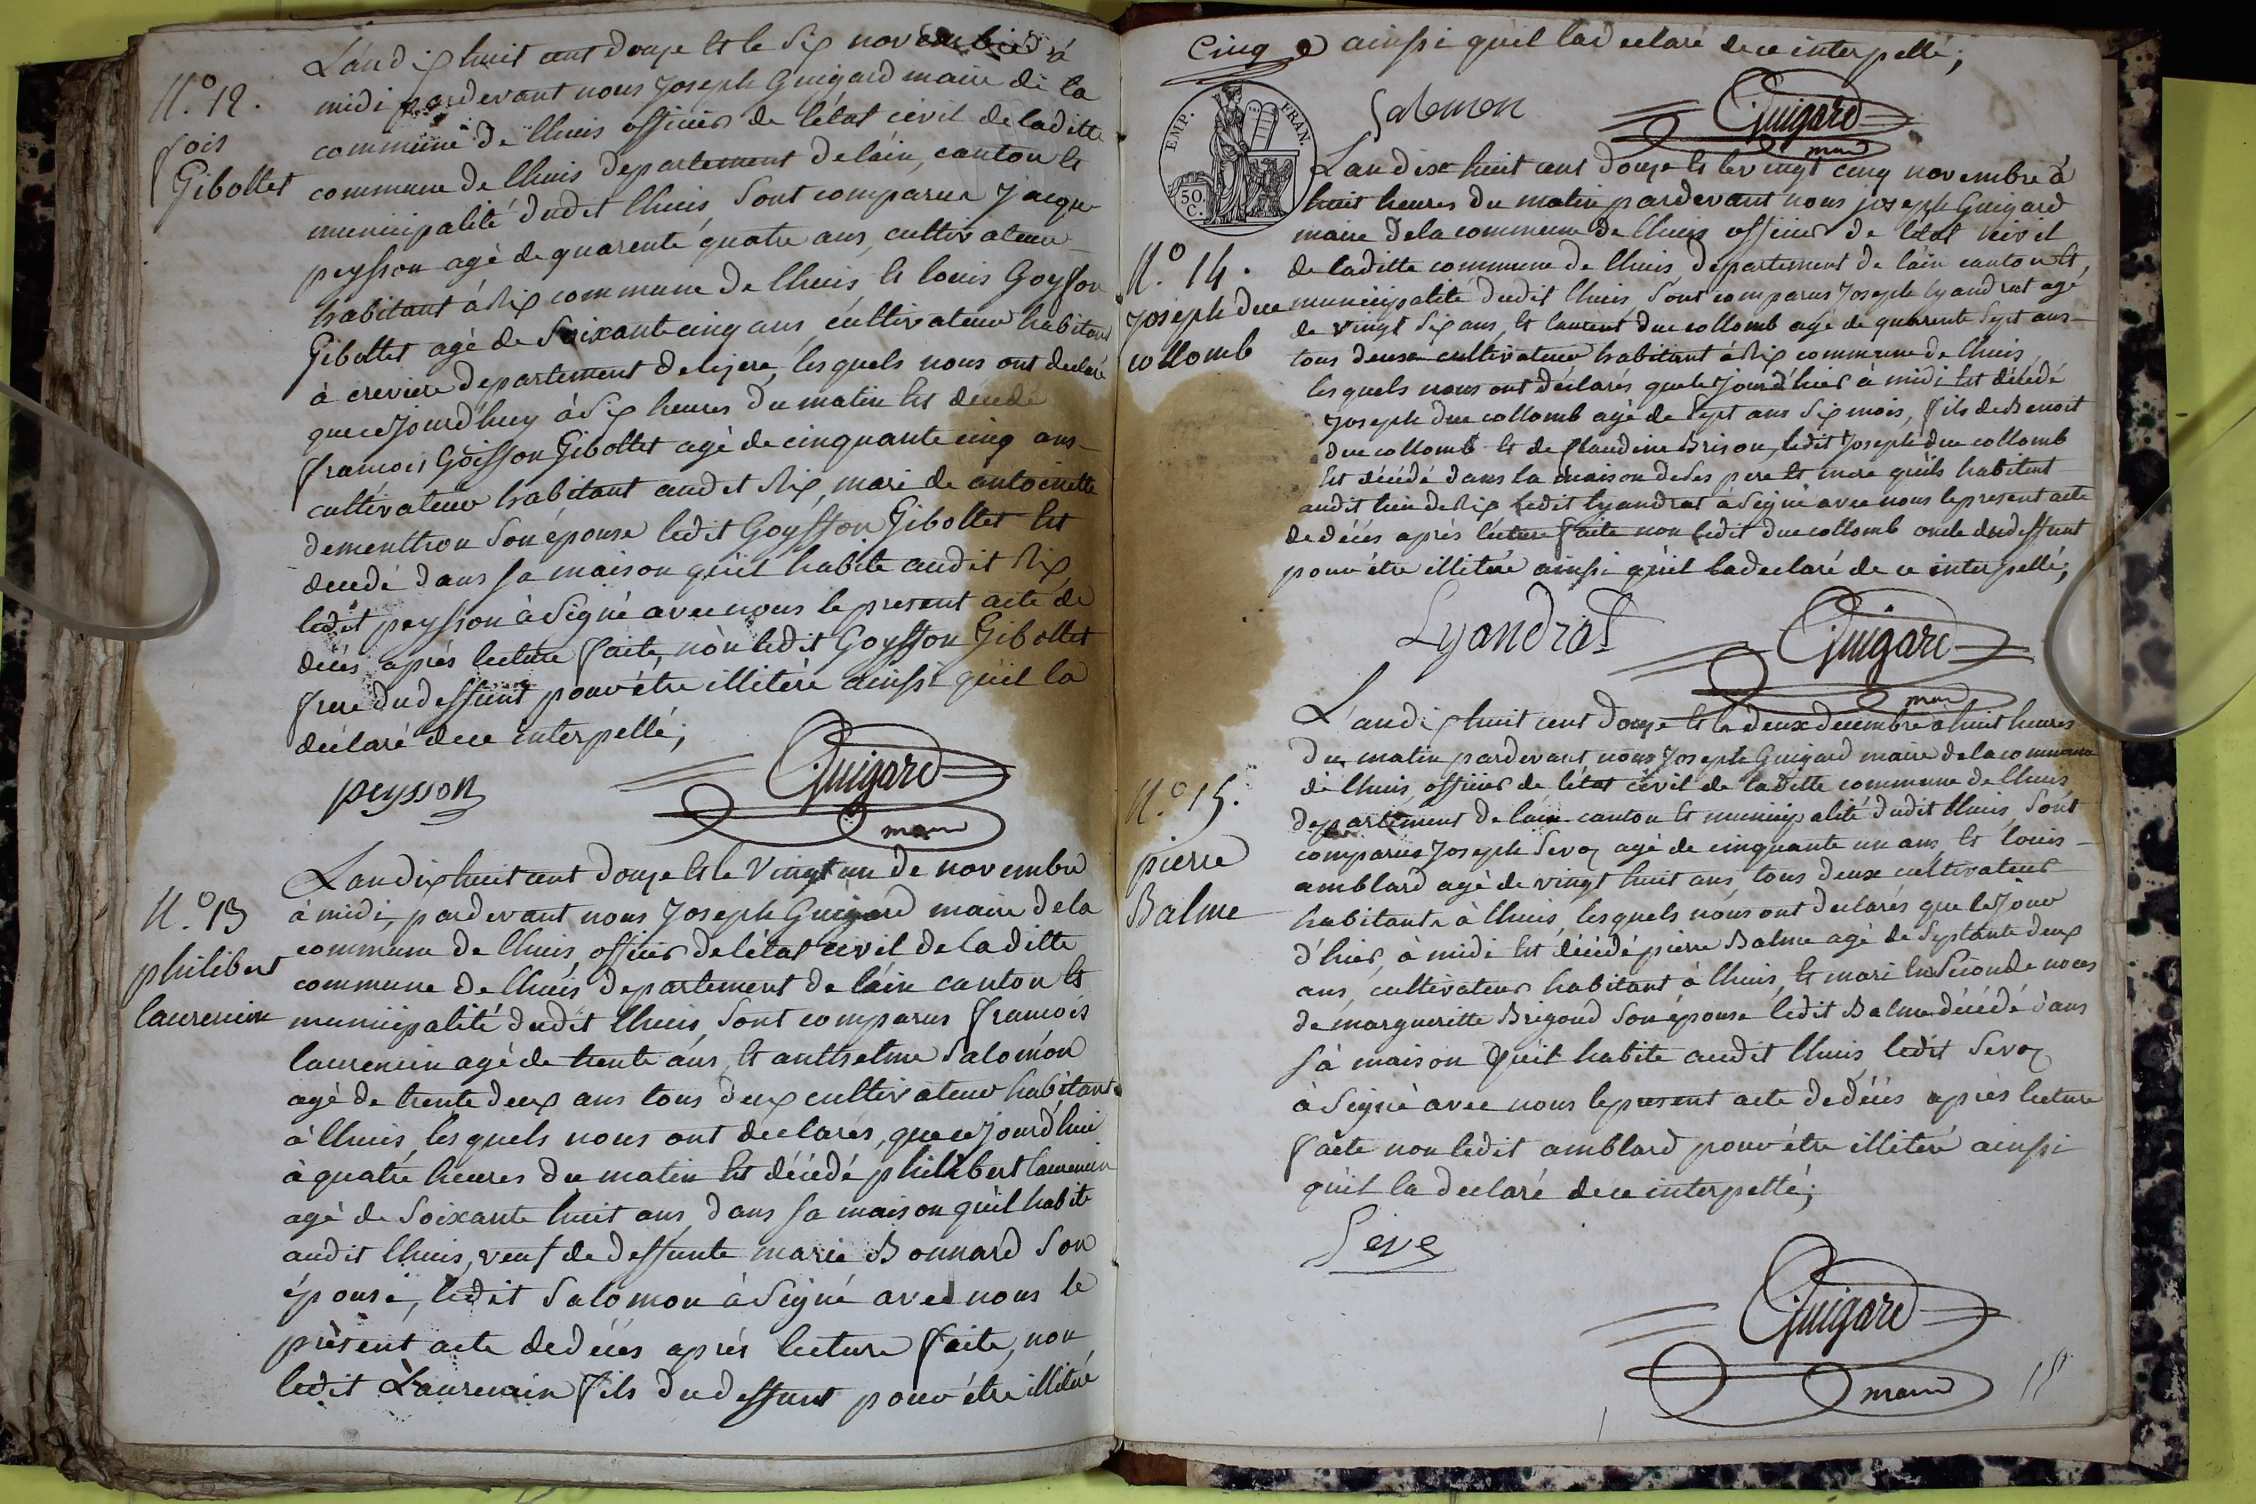 L'an dix huit cent douze et le six novembre à
N.° 12.
midi pardevant nous Joseph Guigard maire de la
commune de lhuis officier de létat civil de laditte
fois
Gibollet
commune de lhuis departement de láin, canton et
municipalité dudit lhuis sont comparus Jacque
peysson agé de quarente quatre ans, cultivateur
habitant á Rix commune de lhuis et louis Goysson
Gibollet agé de soixante cinq ans, cultivateur habitant
à creviere departement de lizere, lesquels nous ont declaré
que cejourd'huy à six heures du matin est décédé
francois Goisson Gibollet agé de cinquante cinq ans
cultivateur habitant audit Rix, mari de antoinette
dementhon son épouse ledit Goysson Gibollet est
decedé dans sa maison qu'il habite audit Rix
ledit peysson à signé avec nous le present acte de
décés aprés lecture faite, nòn ledit Goysson Gibollet
frere du deffunt pour étre illitéré ainsi qu'il la
déclaré de ce interpellé;
peysson
Guigard
maire
L'an dix huit cent douze et le vingt un de novembre
N.° 13
à midi, pardevant nous Joseph Guigard maire de la
commune de lhuis, officier de létat civil de laditte
philibert
commune de lhuis departement de láin canton et
laurencin
municipalité dudit lhuis, sont comparus francois
laurencin agé de trente ans, et anthelme Salomon
agé de trente deux ans tous deux cultivateur habitant
à lhuis, lesquels nous ont declarés, que cejourd'hui
à quatre heures du matin est décédé philibert laurencin
agé de soixante huit ans, dans sa maison qu'il habite
audit lhuis, veuf de deffunte marie Bonnard son
épouse, ledit Salomon à signé avec nous le
présent acte de décés aprés lecture faite, non
ledit Laurencin fils du deffunt pour étre illitéré
Cinq ainsi qu'il la declaré de ce interpellé;
EMP. FRAN.
50 C.
Salomon
Guigard
maire
L'an dix huit cent douze et le vingt cinq novembre à
huit heures du matin pardevant nous joseph Guigard
maire de la commune de lhuis officier de létat civil
N.° 14.
de laditte commune de lhuis, departement de láin canton et,
joseph duc
collomb
municipalité dudit lhuis, sont comparus Joseph lyandrat agé
de vingt six ans, et laurent duc collomb agé de quarente sept ans
tous deux cultivateur habitant á Rix commune de lhuis
lesquels nous ont déclarés que le jourd'hier à midi est décédé
Joseph duc collomb agé de sept ans six mois, fils de Benoit
duc collomb et de Claudine Brison, ledit Joseph duc collomb
est décédé dans la maison de ses pere et mere qu'ils habitent
audit lieu de Rix ledit lyandrat à signé avec nous le present acte
de décés aprés lécture faite non ledit duc collomb oncle du deffunt
pour étre illitéré ainsi qu'il la declaré de ce interpellé;
Lyandrat
Guigard
maire
L'an dix huit cent douze et le deux decembre à huit heures
du matin pardevant nous Joseph Guigard maire de la commune
N.° 15.
de lhuis, officier de létat civil de laditte commune de lhuis
departement de láin canton et municipalité dudit lhuis, sont
pierre
Balme
comparus Joseph Sevoz agé de cinquante un ans, et louis
amblard agé de vingt huit ans, tous deux cultivateur
habitants à lhuis, lesquels nous ont declarés que le jour
d'hier, à midi est décédé pierre Balme agé de septante deux
ans, cultivateur habitant à lhuis, et mari en seconde noces
de marguerette Brigoud son épouse ledit Balme décédé dans
sà maison qu'il habite audit lhuis, ledit Sevoz
à signé avec nous le present acte de décés aprés lecture
faite non ledit amblard pour étre illitéré ainsi
qu'il la declaré de ce interpellé;
Guigard
maire